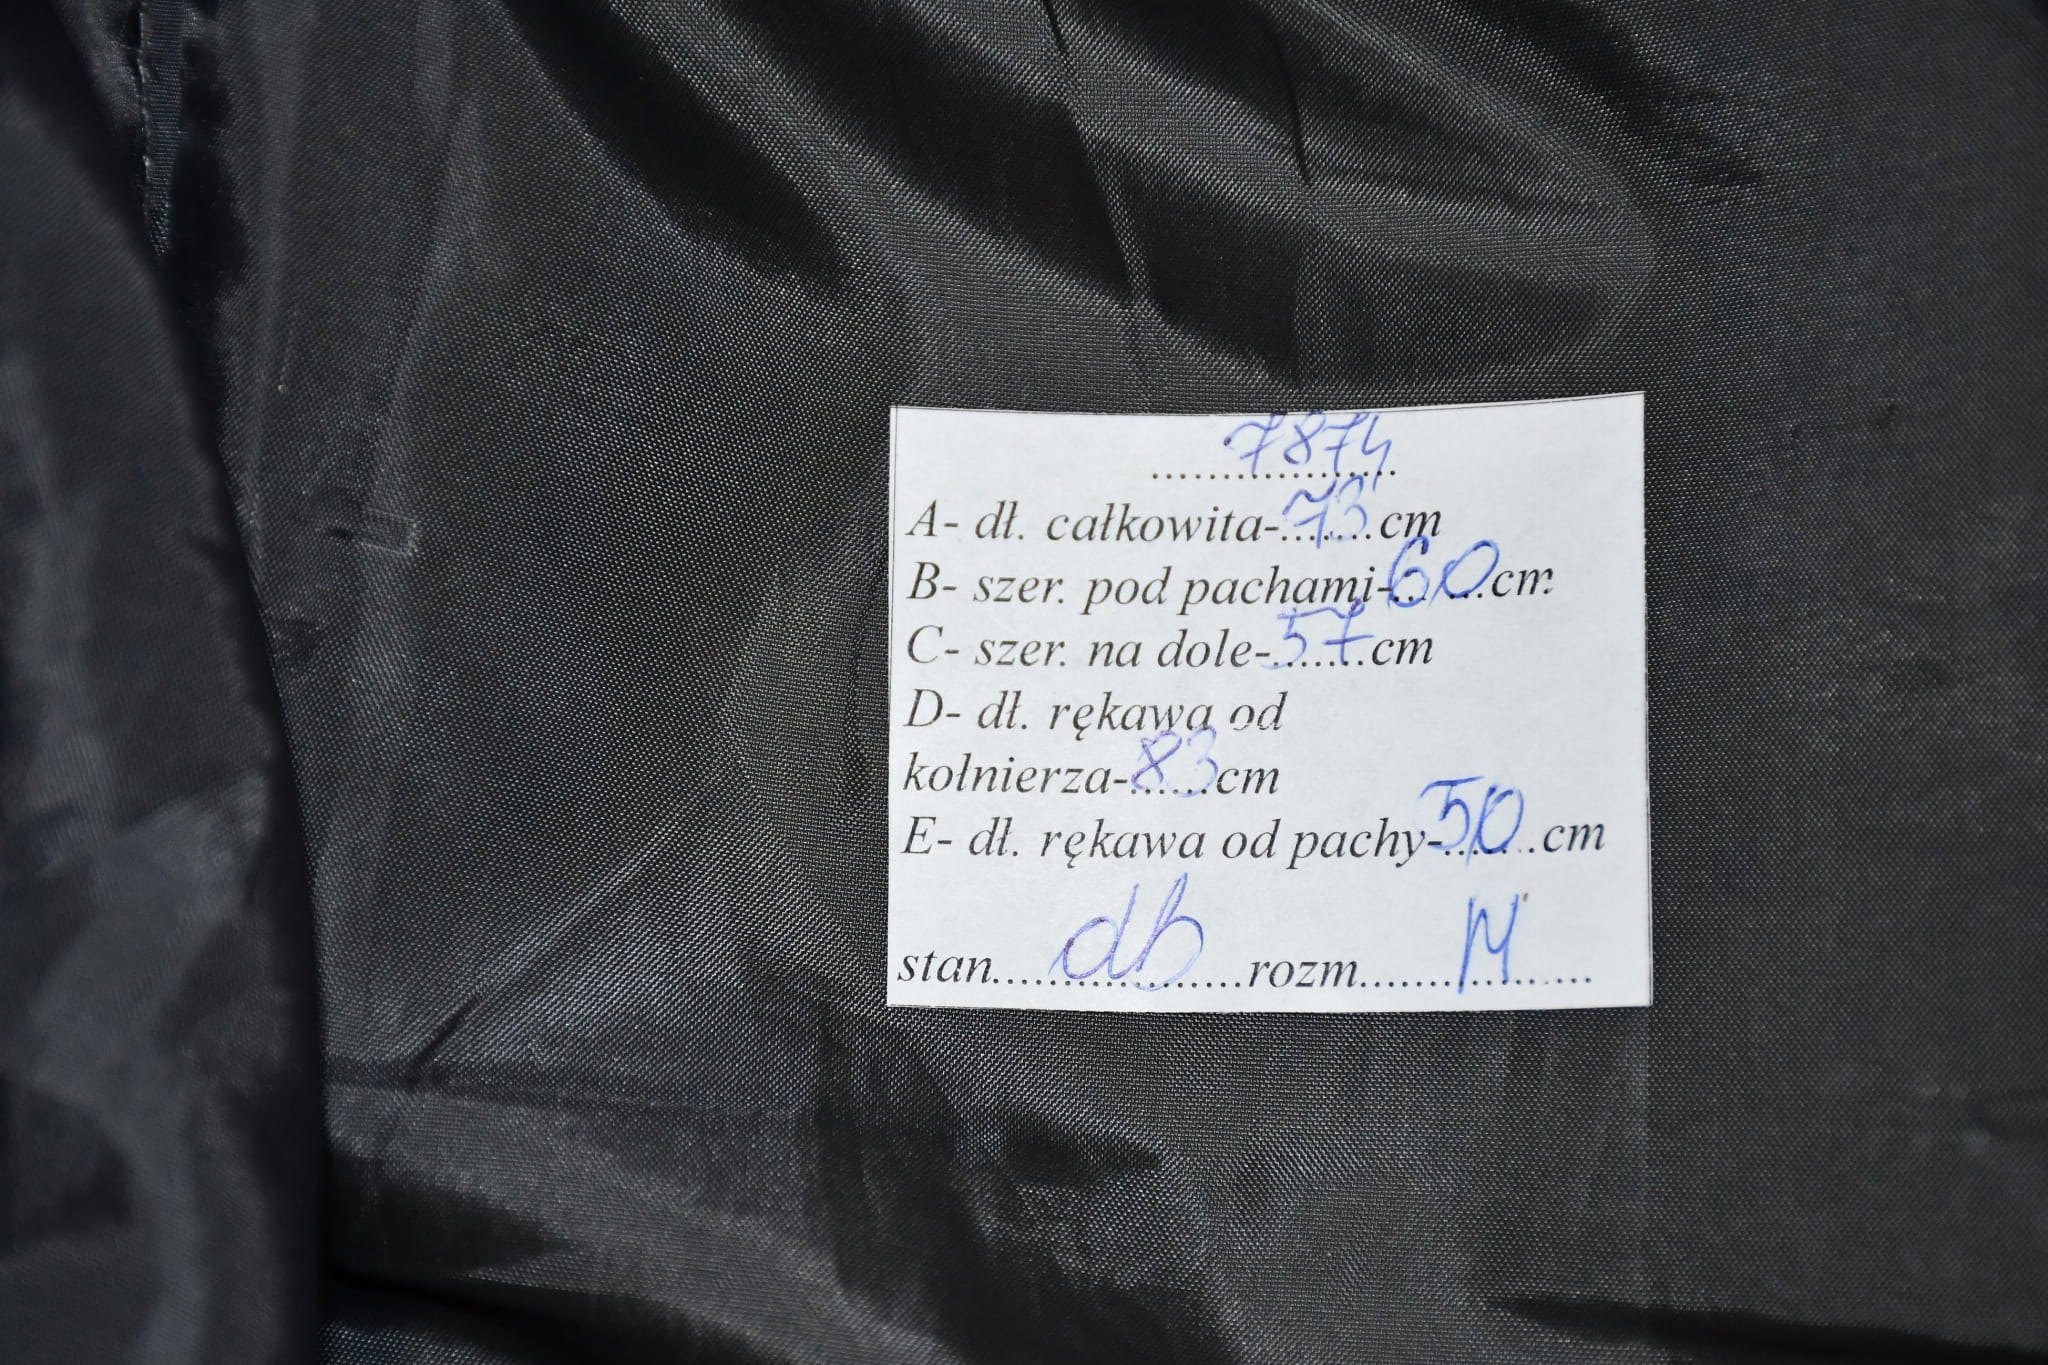 7874
A- dł. całkowita-73cm
B- szer. pod pachami-60cm
C- szer. na dole-57cm
D- dł. rękawa od
kołnierza-83cm
E- dł. rękawa od pachy-50cm
stan....db....rozm....M....